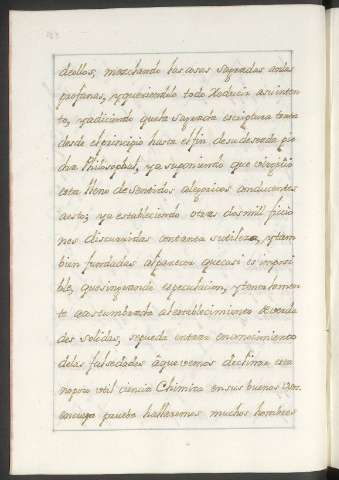 deellos, mezclando las cosas sagradas conlas
profanas, y queriendolo todo reducir asu inten
to, yadiciendo quela Sagrada escriptura trata
desde el principio hasta el fin desu deseada pie
dra Philosophal, ya suponiendo que Virgilio
esta lleno de sentidos alegoricos conducentes
aesto; ya estableciendo otras dos mil ficcio
nes discurridas contanta sutileza, ytam
bien fundadas alparecer, que casi es imposi
ble, que singrande especulacion, y entendimien
to acostumbrado al establecimiento de verda
des solidas, se pueda entrar en conocimiento
delas falsedades âque vemos declinar esta
no poco util ciencia Chimica en sus buenos Usos.
encuya prueba hallaremos muchos hombres